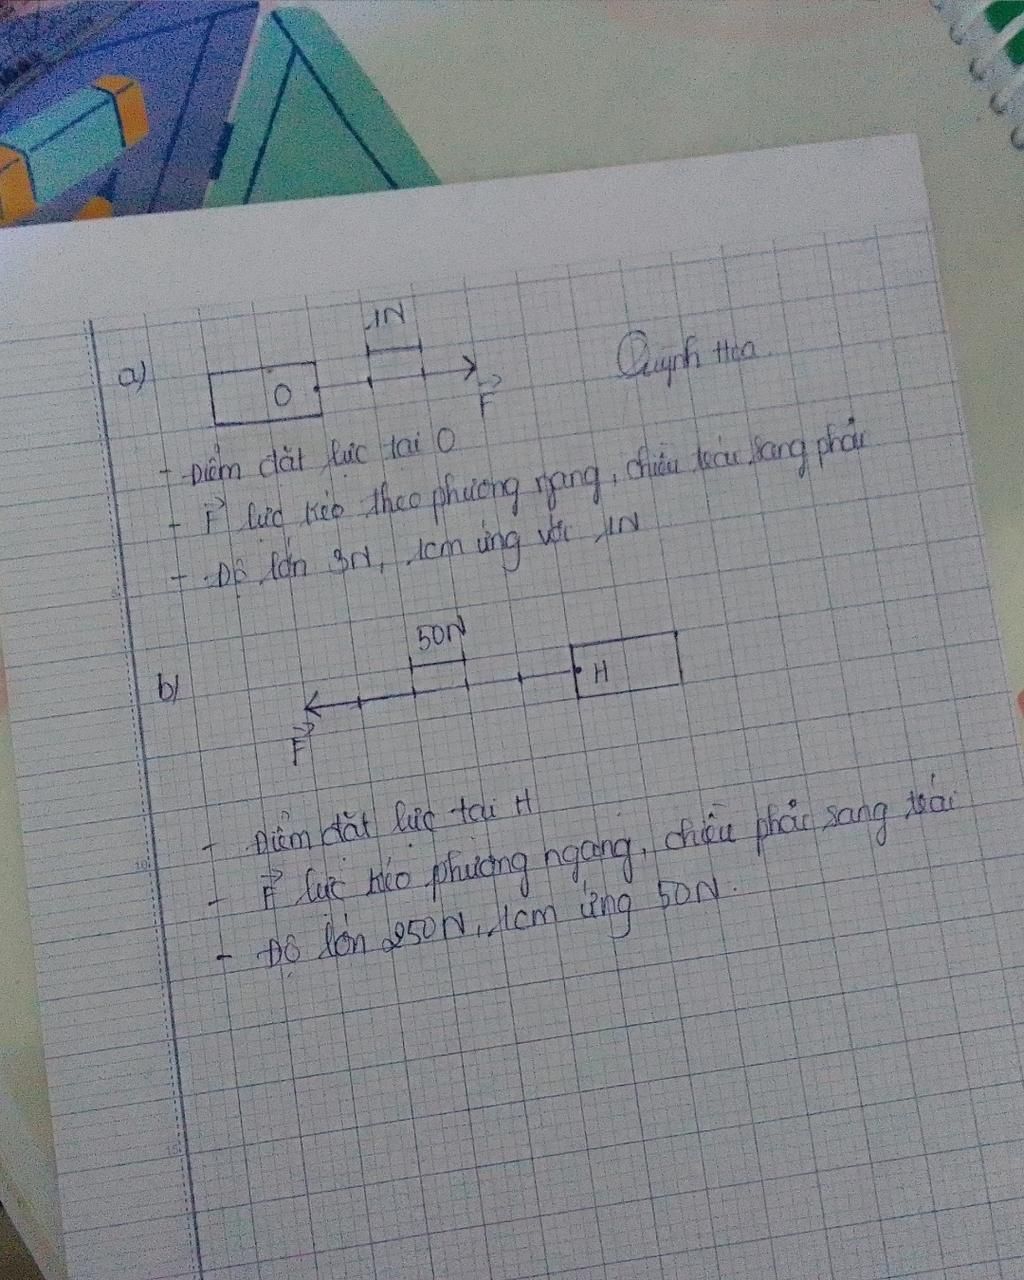 1N
a)
O
F
Quỳnh Hoa.
+ Điểm đặt lực tại O
+ F lực kéo theo phương ngang, chiều trái sang phải
+ Độ lớn 3N, 1cm ứng với 1N
50N
b)
H
F
+ Điểm đặt lực tại H
+ F lực kéo phương ngang, chiều phải sang trái
+ Độ lớn 250N, 1cm ứng 50N.